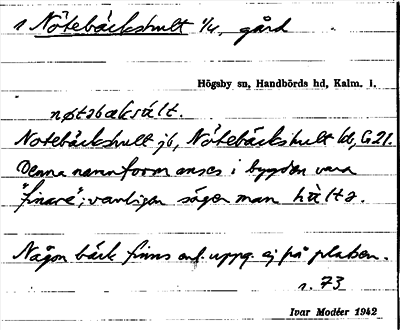 1 Nötebäckshult 1/4, gård
Högsby sn, Handbörds hd, Kalm. l.
nøtabæksält.
Notebäckshult jb, Nötebäckshult kb, G21.
Denna namnform anses i bygden vara
"finare"; vanligen säger man hälta.
Någon bäck finns enl. uppg. ej på platsen.
s. 73
Ivar Modéer 1942